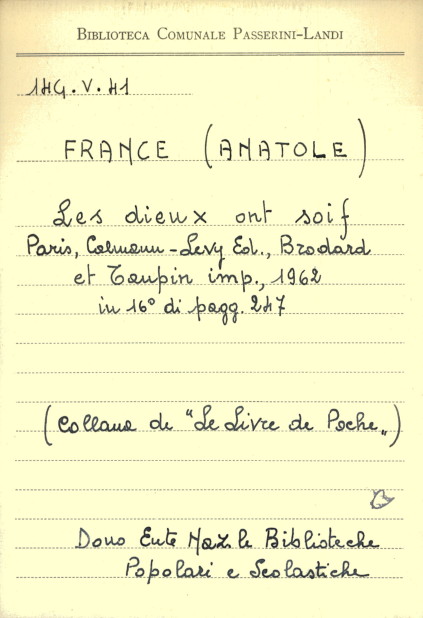 BIBLIOTECA COMUNALE PASSERINI-LANDI
14G.V.41
FRANCE (ANATOLE)
Les dieux ont soif
Paris, Calmann-Levy Ed., Brodard
et Taupin imp., 1962
in 16° di pagg. 247
(Collana de "Le Livre de Poche„)
Dono Ente Naz.le Biblioteche
Popolari e Scolastiche